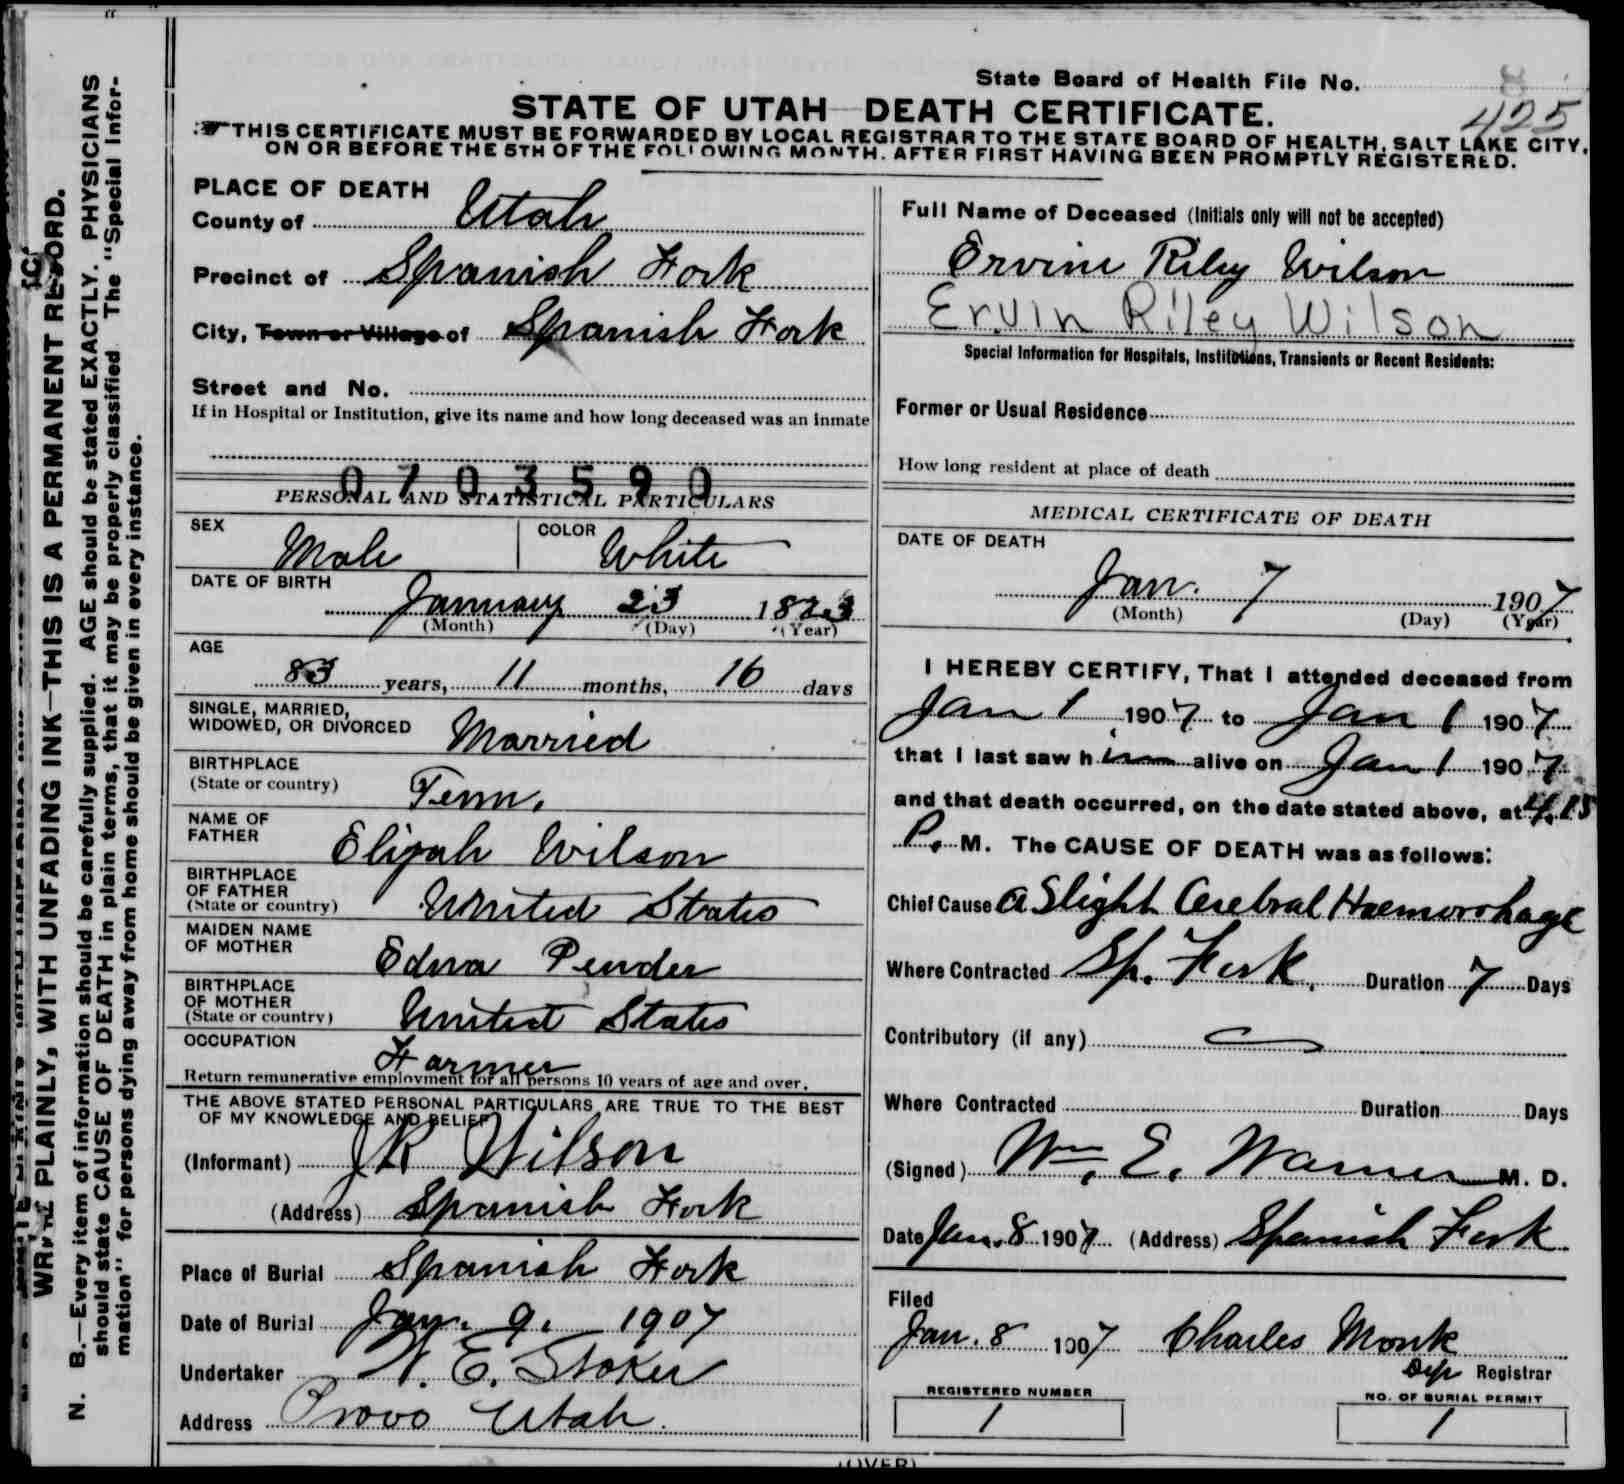 State Board of Health File No. 8
425
STATE OF UTAH—DEATH CERTIFICATE.
THIS CERTIFICATE MUST BE FORWARDED BY LOCAL REGISTRAR TO THE STATE BOARD OF HEALTH, SALT LAKE CITY,
ON OR BEFORE THE 5TH OF THE FOLLOWING MONTH. AFTER FIRST HAVING BEEN PROMPTLY REGISTERED.
WRITE PLAINLY, WITH UNFADING INK—THIS IS A PERMANENT RECORD.
N. B.—Every item of information should be carefully supplied. AGE should be stated EXACTLY. PHYSICIANS
should state CAUSE OF DEATH in plain terms, that it may be properly classified. The "Special Infor-
mation" for persons dying away from home should be given in every instance.
PLACE OF DEATH
County of Utah
Precinct of Spanish Fork
City, Town or Village of Spanish Fork
Street and No.
If in Hospital or Institution, give its name and how long deceased was an inmate
0703590
PERSONAL AND STATISTICAL PARTICULARS
SEX Male COLOR White
DATE OF BIRTH
January 23 1823
(Month) (Day) (Year)
AGE
83 years, 11 months, 16 days
SINGLE, MARRIED,
WIDOWED, OR DIVORCED Married
BIRTHPLACE
(State or country) Tenn.
NAME OF
FATHER Elijah Wilson
BIRTHPLACE
OF FATHER
(State or country) United States
MAIDEN NAME
OF MOTHER Edna Pender
BIRTHPLACE
OF MOTHER
(State or country) United States
OCCUPATION
Farmer
Return remunerative employment for all persons 10 years of age and over.
THE ABOVE STATED PERSONAL PARTICULARS ARE TRUE TO THE BEST
OF MY KNOWLEDGE AND BELIEF
(Informant) J R Wilson
(Address) Spanish Fork
Place of Burial Spanish Fork
Date of Burial Jan. 9. 1907
Undertaker W. E. Stoker
Address Provo Utah.
Full Name of Deceased (Initials only will not be accepted)
Ervine Riley Wilson
Ervin Riley Wilson
Special Information for Hospitals, Institutions, Transients or Recent Residents:
Former or Usual Residence
How long resident at place of death
MEDICAL CERTIFICATE OF DEATH
DATE OF DEATH
Jan. 7 1907
(Month) (Day) (Year)
I HEREBY CERTIFY, That I attended deceased from
Jan 1 1907 to Jan 1 1907
that I last saw him alive on Jan 1 1907
and that death occurred, on the date stated above, at 4.15
P. M. The CAUSE OF DEATH was as follows:
Chief Cause a Slight Cerebral Haemorrhage
Where Contracted Sp. Fork. Duration 7 Days
Contributory (if any)
Where Contracted Duration Days
(Signed) Wm. E. Warner M. D.
Date Jan. 8 1907 (Address) Spanish Fork
Filed
Jan. 8 1907 Charles Monk
Dep Registrar
REGISTERED NUMBER
1
NO. OF BURIAL PERMIT
1
(OVER)